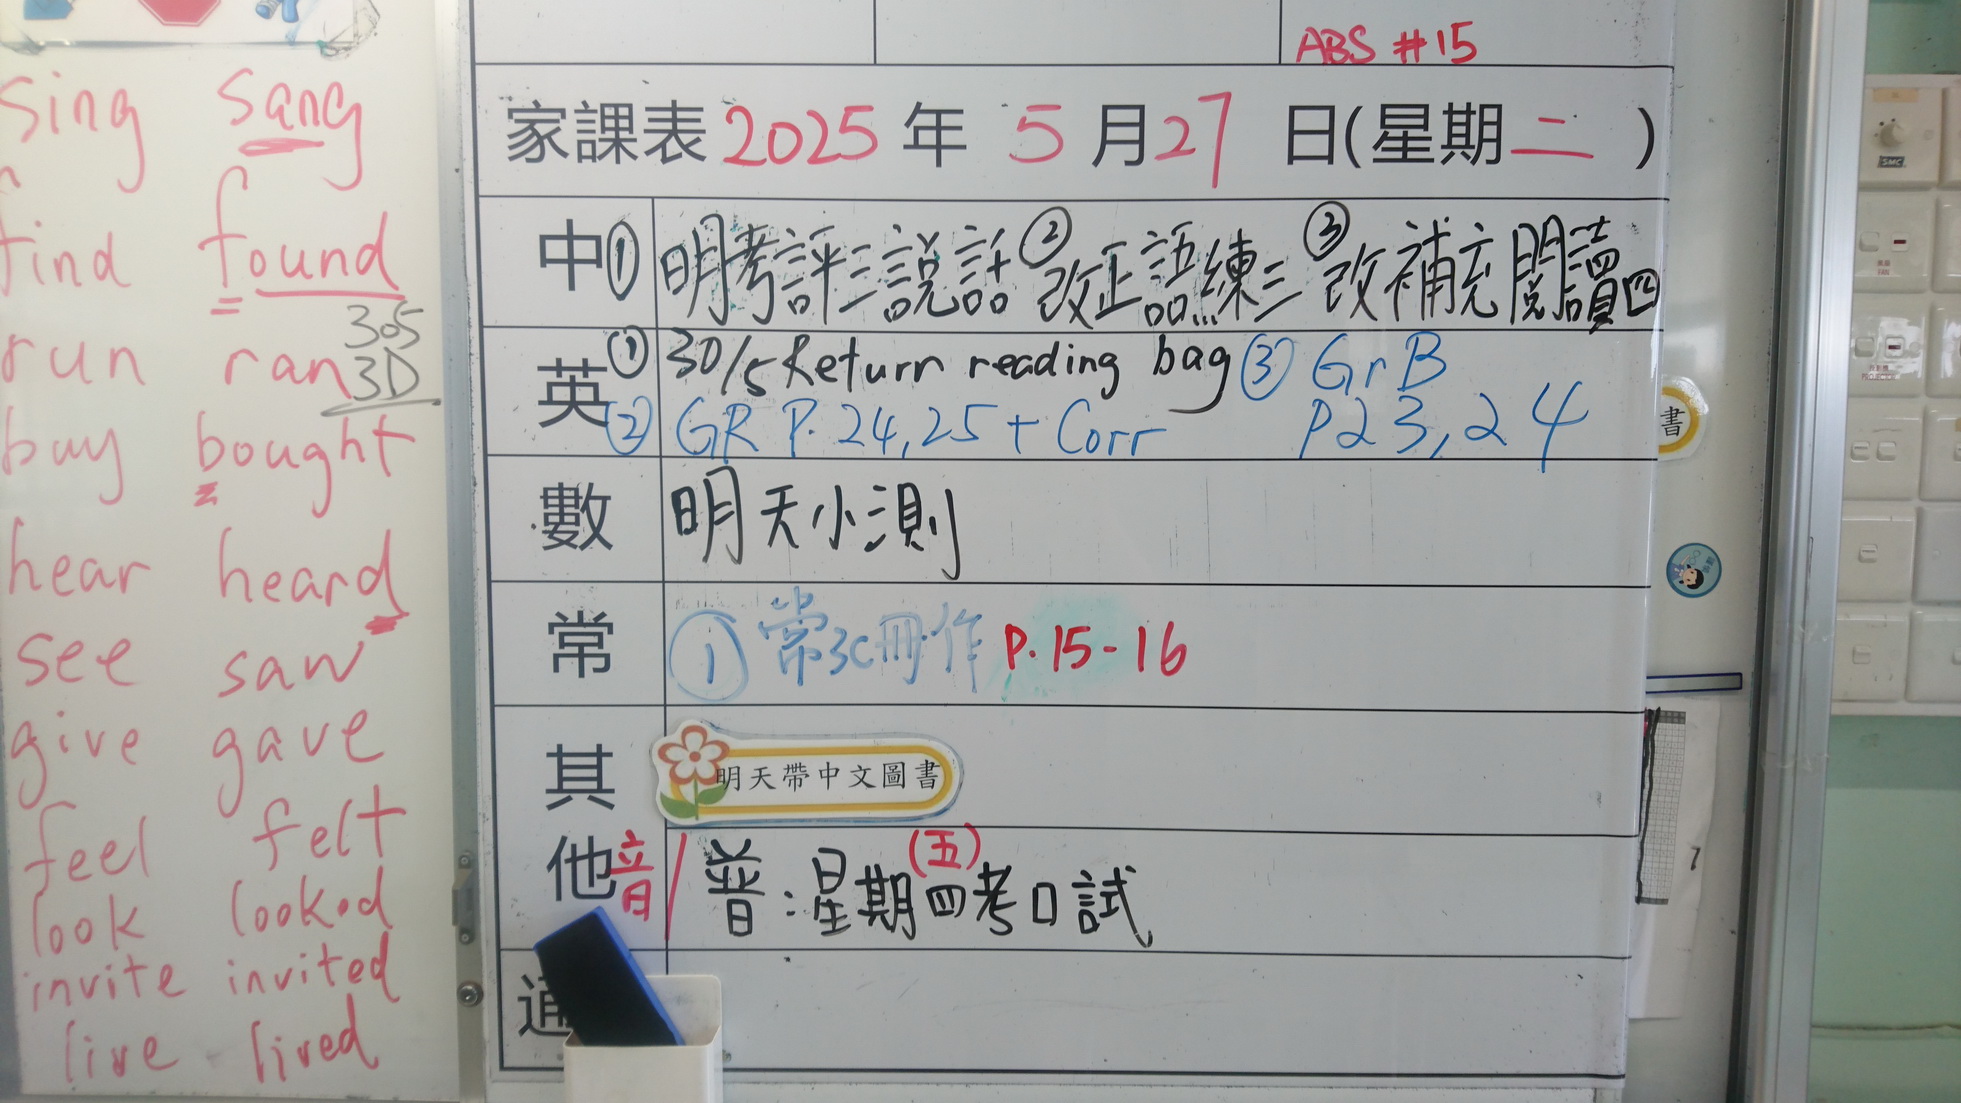 sing sang
find found
305
run ran 3D
buy bought
hear heard
see saw
give gave
feel felt
look looked
invite invited
live lived
ABS #15
家課表 2025 年 5 月 27 日(星期 二 )
中 ① 明考評三說話 ② 改正語練三 ③ 改補充閱讀四
英 ① 30/5 Return reading bag ③ Gr B
② GR P. 24, 25 + Corr P23, 24
數 明天小測
常 ① 常3C冊作 P. 15-16
其他 明天帶中文圖書
音 / 普:星期四(五)考口試
通
書
SMC
FAN
7